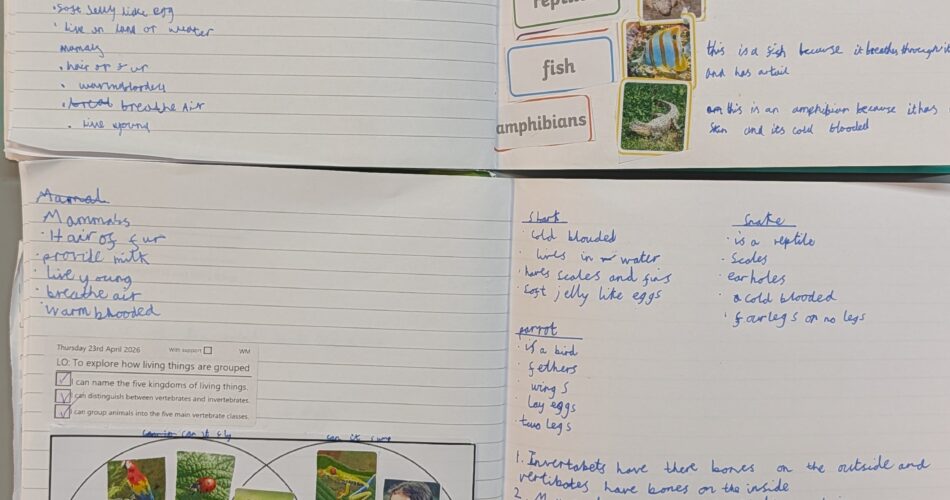 · Soft jelly like egg
· live on land or weater
Mamals
· hair or fur
· warmblooders
· breathe Air
· live young
reptiles
fish
this is a fish because it breathes through it
and has a tail
amphibians
this is an amphibian because it has
skin and its cold blooded
Mamal
Mammabs
· Hair of fur
· provide milk
· live young
· breathe air
· warm blooded
Thursday 23rd April 2026 With support WM
LO: To explore how living things are grouped
I can name the five kingdoms of living things.
I can distinguish between vertebrates and invertebrates.
I can group animals into the five main vertebrate classes.
can it fly
Shark
· cold blouded
· lives in water
· haves scales and fins
· soft jelly like eggs
parrot
· is a bird
· fethers
· wings
· lay eggs
· two legs
Snake
· is a reptile
· Scales
· earholes
· cold blooded
· four legs or no legs
1. Invertabets have there bones on the outside and
vertibotes have bones on the inside
2.